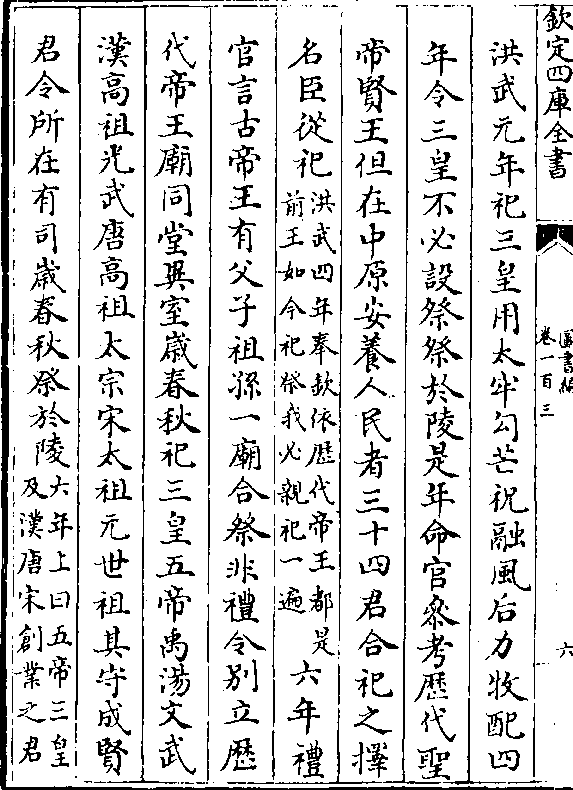 欽定四庫全書
圖書編
卷一百三
六
洪武元年祀三皇用太牢勾芒祝融風后力牧配四
年令三皇不必設祭祭於陵是年命官叅考歷代聖
帝賢王但在中原安養人民者三十四君合祀之擇
名臣從祀洪武四年奉欽依歷代帝王都是
前王如今祀祭我必親祀一遍六年禮
官言古帝王有父子祖孫一廟合祭非禮令別立歷
代帝王廟同堂異室歲春秋祀三皇五帝禹湯文武
漢高祖光武唐高祖太宗宋太祖元世祖其守成賢
君令所在有司歲春秋祭於陵六年上曰五帝三皇
及漢唐宋創業之君